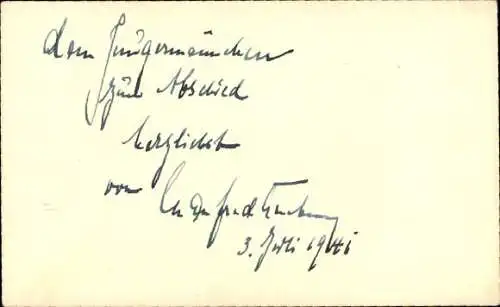 dem Jüngermännchen
zum Abschied
herzlichst
von
3. Juli 1941